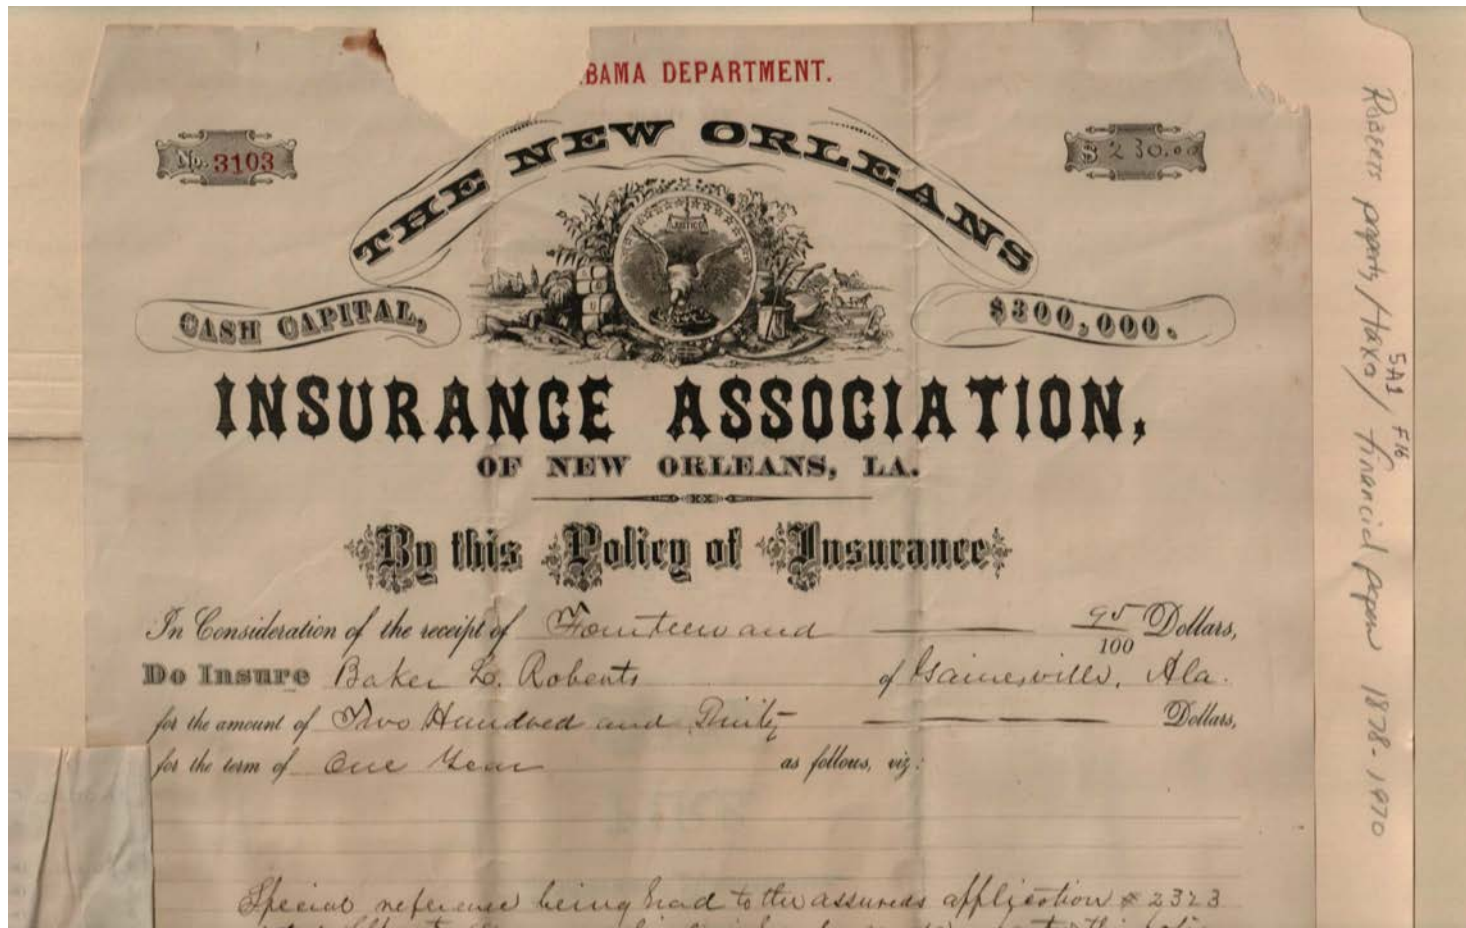 BAMA DEPARTMENT.
No. 3103
$ 230.00
THE NEW ORLEANS
CASH CAPITAL,
$300,000.
INSURANCE ASSOCIATION,
OF NEW ORLEANS, LA.
By this Policy of Insurance
In Consideration of the receipt of Fourteen and 95/100 Dollars,
Do Insure Baker L. Roberts of Gainesville, Ala.
for the amount of Two Hundred and Thirty Dollars,
for the term of One Year as follows, viz:
Special reference being had to the assureds application # 2323
Roberts property / Hako / financial papers 1878-1970
5A1, F16